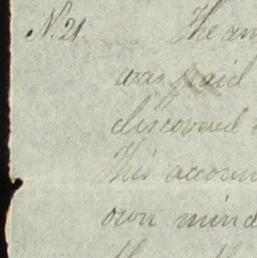 N. 21. The am
was paid
discovered
This accoun
own mind